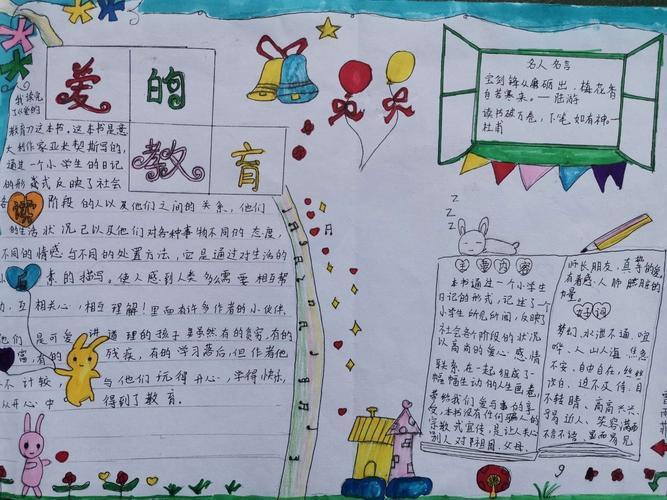 爱的
教育
我读完
了《爱的
教育》这本书。这本书是意
大利作家亚米契斯写的,
通过一个小学生的日记
的形式反映了社会
阶段的人以及他们之间的关系,他们
的生活状况已以及他们对各种事物不同的态度,
不同的情感与不同的处置方法,它是通过对生活的
素的描写。使人感到人类多么需要相互帮
互相关心,相互理解!里面有许多作者的小伙伴,
他们是可爱、讲道理的孩子。虽然有的贫穷,有的
富,有的残疾,有的学习落后,但作者他
不计较与他们玩得开心,学得快乐,
从开心中得到了教育。
读
名人名言
宝剑锋从磨砺出,梅花香
自苦寒来。—陆游
读书破万卷,下笔如有神—
杜甫
Z
Z
Z
主要内容
本书通过一个小学生
日记的形式,记述了一个
小学生所见所闻,反映了
社会各个阶段的状况
以高尚的爱心感情
联系在一起,组成了一
幅幅生动的人生画卷,
带给我们爱与善的享
受,本书没有任何骗人的
宗教式宣传,是让人关心
别人对祖国、父母、
师长朋友,真挚的爱,
有着感人肺腑的
力量。
好词
梦幻、水泄不通、喧
哗、人山人海、焦急
不安、自由自在、丝丝
次白、迫不及待、目
不转睛、高高兴兴、
平易近人、笑容满面